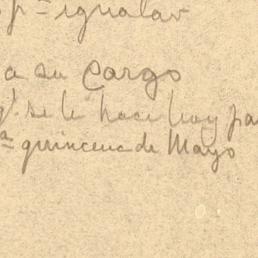 pª igualar
a su Cargo
q.' se le hace hoy pa
ª quincena de Mayo